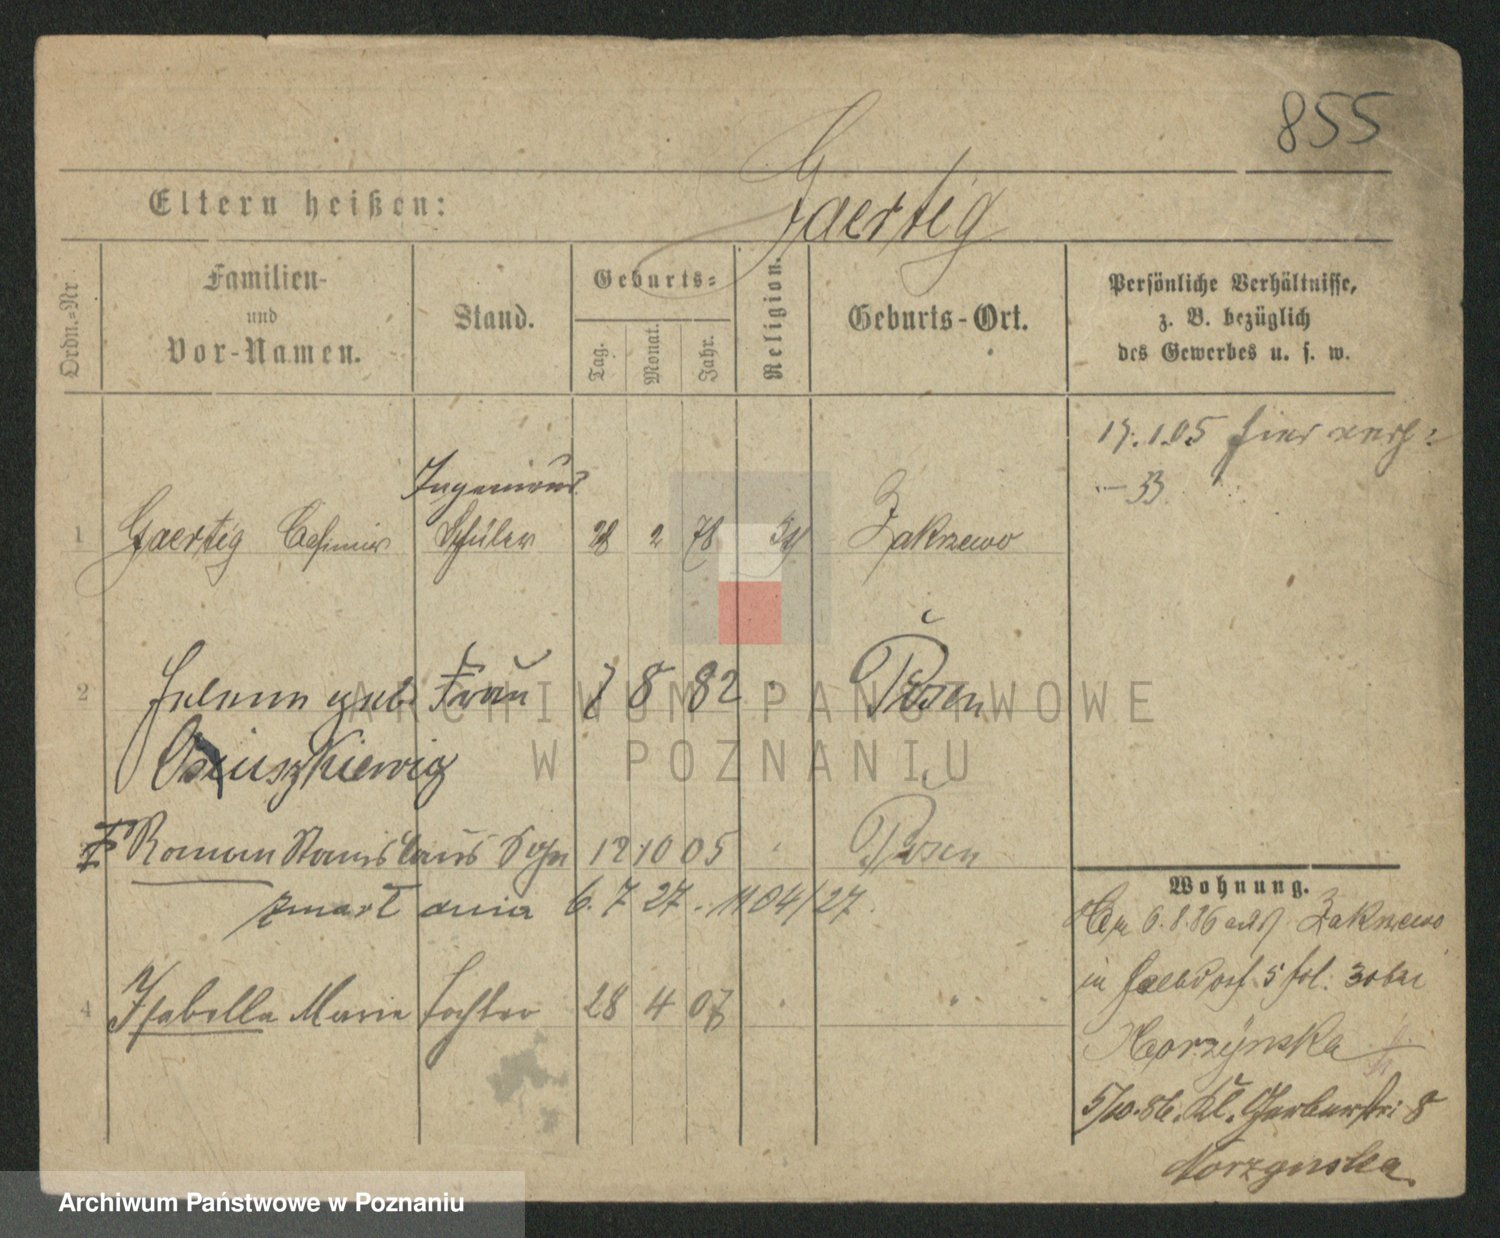 855
Eltern heißen:
Gaertig
Ordn.-Nr
Familien-
und
Vor-Namen.
Stand.
Geburts-
Tag.
Monat.
Jahr.
Religion.
Geburts-Ort.
Persönliche Verhältnisse,
z. B. bezüglich
des Gewerbes u. s. w.
17.1.05 hier verh:
33
Ingenieur
1 Gaertig Casimir Schüler 28 2 78 Zakrzewo
2 Helene geb. Frau 7 8 82 Posen
Roman Stanislaus Sohn 12 10 05 Posen
zmarł dnia 6. 7 27. 1104/27.
4 Isabella Marie Tochter 28 4 07
Wohnung.
6.8.86 Zakrzewo
in 5 bei
Horzynska
5/10.86. Kl. Gerberstr: 8
Horzynska
ARCHIWUM PAŃSTWOWE
W POZNANIU
Archiwum Państwowe w Poznaniu